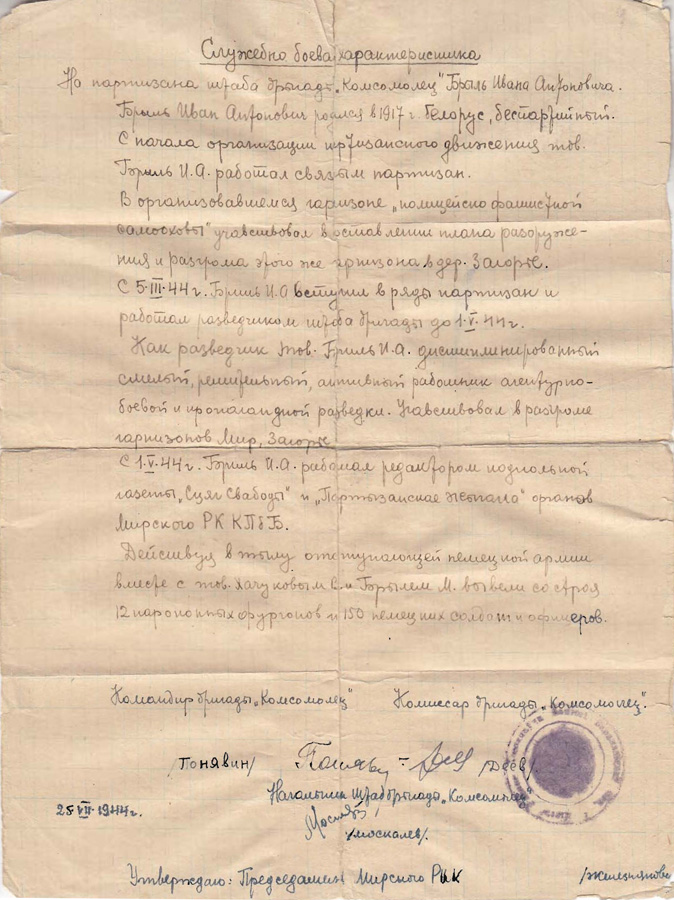 Служебно боева характеристика
На партизана штаба бригады „Комсомолец" Брыль Ивана Антоновича.
Брыль Иван Антонович родился в 1917 г. белорус, беспартийный.
С начала организации партизансного движения тов.
Брыль И.А. работал связым партизан.
В организовавшемся гарнизоне „полицейско фашистной
самооховы" учавствовал в оставлении плана разоруже-
ния и разгрома этого же гарнизона в дер. Загорье.
С 5.III.44 г. Брыль И.А вступил в ряды партизан и
работал разведчиком штаба бригады до 1.V.44 г.
Как разведчик тов. Брыль И.А. дисциплинированный
смелый, решительный, активный работник агентурно-
боевой и пропагандной разведки. Учавствовал в разгроме
гарнизонов Мир, Загорье
С 1.V.44 г. Брыль И.А. работал редактором подпольной
газеты „Сцяг Свабоды" и „Партызанскае жыгала" органов
Мирского РК КПбБ.
Действуя в тылу отступающей немецкой армии
вместе с тов. Хачуковым С. и Брылем М. вывели со строя
12 пароконных фургонов и 150 немецких солдат и офицеров.
Командир бригады „Комсомолец" Комиссар бригады „Комсомолец".
/Понявин/ /Деев/
Начальник штаба бригады „Комсомолец
/Москалев/.
25.VII.1944 г.
Утверждаю: Председатель Мирского РИК